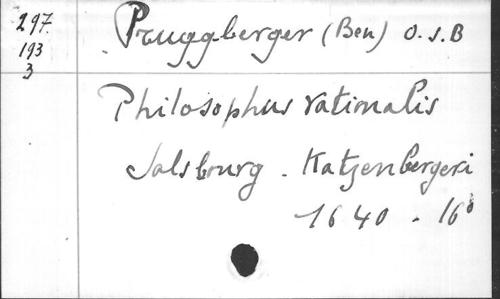 297. Pruggberger (Ben) O.S.B
193
3
Philosophus rationalis
Salsbourg. Katzenbergeri
1640. 16°